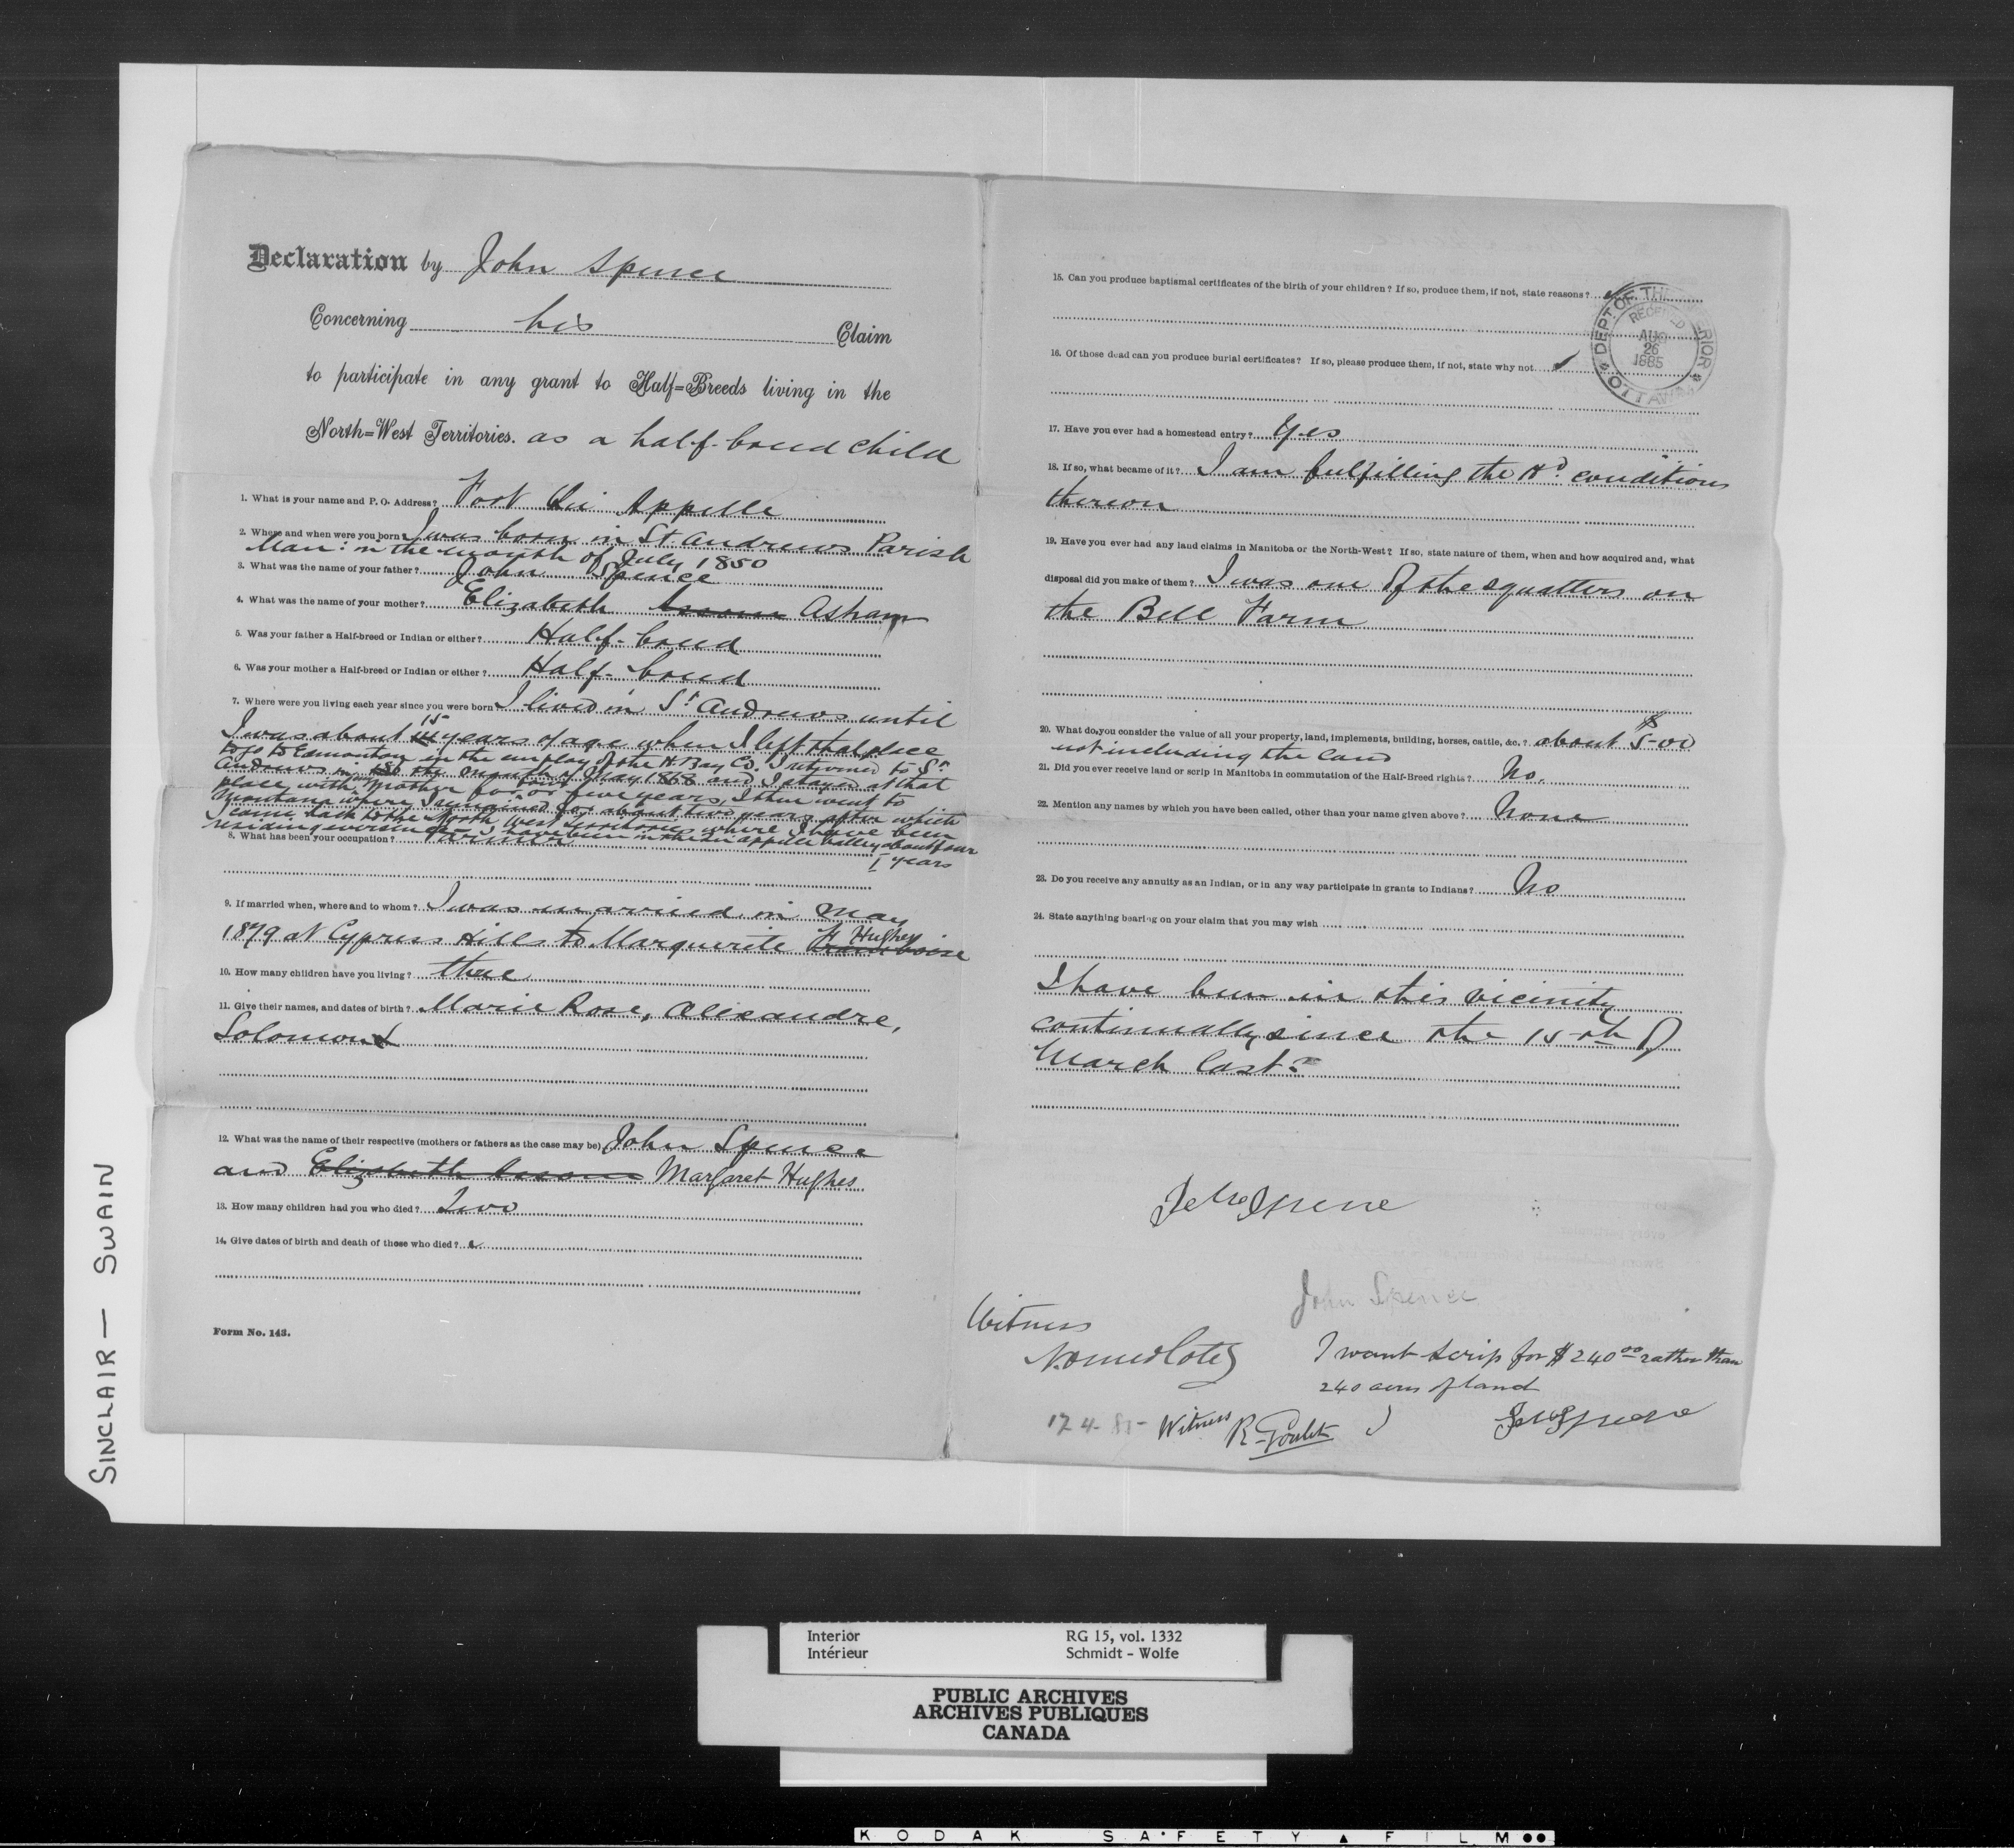 Declaration by John Spence
Concerning his Claim
to participate in any grant to Half=Breeds living in the
North=West Territories. as a half-breed child
1. What is your name and P. O. Address? Fort Qu Appelle
2. Where and when were you born I was born in St. Andrews Parish
Man: in the month of July 1850
3. What was the name of your father? John Spence
4. What was the name of your mother? Elizabeth Asham
5. Was your father a Half-breed or Indian or either? Half-breed
6. Was your mother a Half-breed or Indian or either? Half-breed
7. Where were you living each year since you were born I lived in St Andrews until
I was about 15 years of age when I left that place
to go to Edmonton in the employ of the H. Bay Co. I returned to St
Andrews in the month of May 1868 and I stayed at that
place with mother four or five years, I then went to
Montana where I remained for about two years after which
I came back to the North West Territories where I have been
residing ever since I have been in the Qu'appelle Valley about four
years
8. What has been your occupation? Farmer
9. If married when, where and to whom? I was married in May
1879 at Cypress Hills to Marguerite Hughes
10. How many children have you living? three
11. Give their names, and dates of birth? Marie Rose, Alexandre,
Solomon
12. What was the name of their respective (mothers or fathers as the case may be) John Spence
and Elizabeth Margaret Hughes
13. How many children had you who died? Two
14. Give dates of birth and death of those who died?
Form No. 143.
15. Can you produce baptismal certificates of the birth of your children? If so, produce them, if not, state reasons?
DEPT. OF THE INTERIOR
RECEIVED
AUG
26
1885
OTTAWA
16. Of those dead can you produce burial certificates? If so, please produce them, if not, state why not
17. Have you ever had a homestead entry? Yes
18. If so, what became of it? I am fulfilling the Hd. conditions
thereon
19. Have you ever had any land claims in Manitoba or the North-West? If so, state nature of them, when and how acquired and, what
disposal did you make of them? I was one of the squatters on
the Bell Farm
20. What do you consider the value of all your property, land, implements, building, horses, cattle, &c.? about $500
not including the land
21. Did you ever receive land or scrip in Manitoba in commutation of the Half-Breed rights? No.
22. Mention any names by which you have been called, other than your name given above? None
23. Do you receive any annuity as an Indian, or in any way participate in grants to Indians? No
24. State anything bearing on your claim that you may wish
I have been in this vicinity
continually since the 15th of
March last.
John Spence
John Spence
Witness
I want scrip for $240.00 rather than
240 acres of land
17 4. 85 Witness R. Goulet
John Spence
SINCLAIR — SWAIN
Interior RG 15, vol. 1332
Intérieur Schmidt - Wolfe
PUBLIC ARCHIVES
ARCHIVES PUBLIQUES
CANADA
KODAK SAFETY ▲ FILM ●●